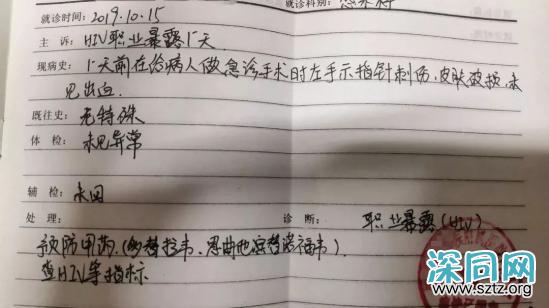 就诊时间：2019.10.15
就诊科别：
主 诉：HIV职业暴露1天
现病史：1天前在给病人做急诊手术时左手示指针刺伤，皮肤破损，未
见出血
既往史：无特殊
体 检：未见异常
辅 检：未回
处 理：
诊 断：职业暴露(HIV)
预防用药（多替拉韦、恩曲他滨替诺福韦）
查HIV等指标
深同网
www.sztz.org